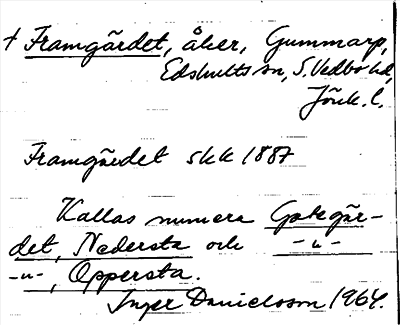 † Framgärdet, åker, Gummarp,
Edshults sn, S. Vedbo hd,
Jönk. l.
Framgärdet skk 1887
Kallas numera Gategär-
det, Nedersta och -"-
-"-, Oppersta.
Inger Danielsson 1964.